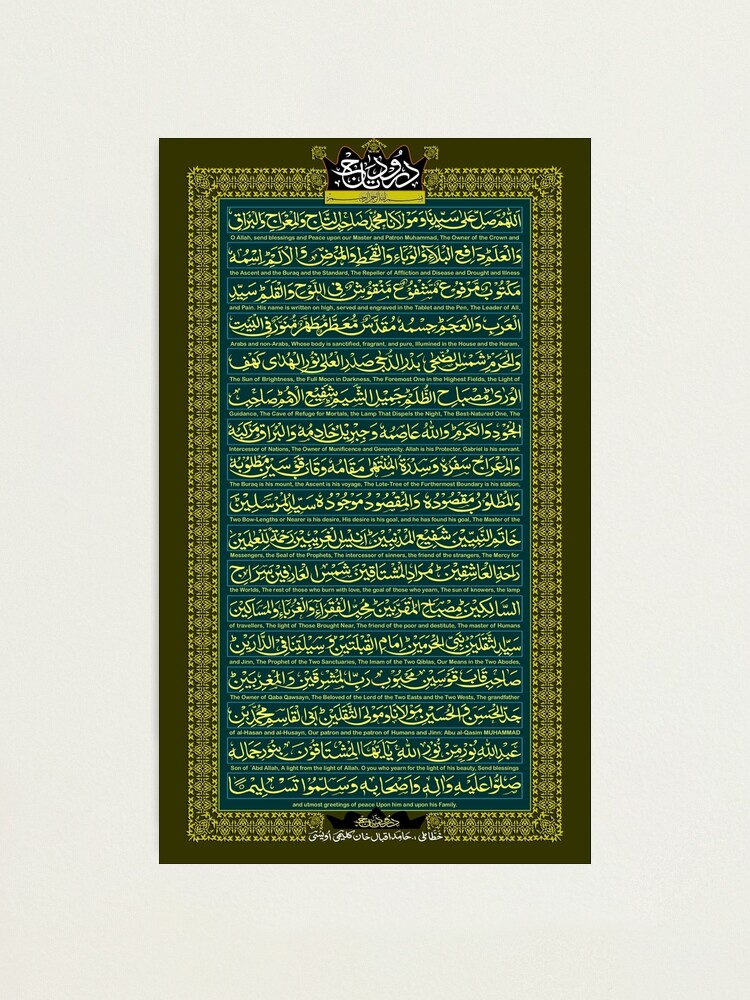 درود تاج
بسم الله الرحمن الرحيم
اللهم صل على سيدنا ومولانا محمد صاحب التاج والمعراج والبراق
O Allah, send blessings and Peace upon our Master and Patron Muhammad, The Owner of the Crown and
والعلم دافع البلاء والوباء والقحط والمرض والالم اسمه
the Ascent and the Buraq and the Standard, The Repeller of Affliction and Disease and Drought and Illness
مكتوب مرفوع مشفوع منقوش في اللوح والقلم سيد
and Pain. His name is written on high, served and engraved in the Tablet and the Pen, The Leader of All,
العرب والعجم جسمه مقدس معطر مطهر منور في البيت
Arabs and non-Arabs, Whose body is sanctified, fragrant, and pure, Illumined in the House and the Haram,
والحرم شمس الضحى بدر الدجى صدر العلى نور الهدى كهف
The Sun of Brightness, the Full Moon in Darkness, The Foremost One in the Highest Fields, the Light of
الورى مصباح الظلم جميل الشيم شفيع الامم صاحب
Guidance, The Cave of Refuge for Mortals, the Lamp That Dispels the Night, The Best-Natured One, The
الجود والكرم والله عاصمه وجبريل خادمه والبراق مركبه
Intercessor of Nations, The Owner of Munificence and Generosity. Allah is his Protector, Gabriel is his servant.
والمعراج سفره وسدرة المنتهى مقامه وقاب قوسين مطلوبه
The Buraq is his mount, the Ascent is his voyage, The Lote-Tree of the Furthermost Boundary is his station,
والمطلوب مقصوده والمقصود موجوده سيد المرسلين
Two Bow-Lengths or Nearer is his desire, His desire is his goal, and he has found his goal, The Master of the
خاتم النبيين شفيع المذنبين انيس الغريبين رحمة للعلمين
Messengers, the Seal of the Prophets, The intercessor of sinners, the friend of the strangers, The Mercy for
راحة العاشقين مراد المشتاقين شمس العارفين سراج
the Worlds, The rest of those who burn with love, the goal of those who yearn, The sun of knowers, the lamp
السالكين مصباح المقربين محب الفقراء والغرباء والمساكين
of travellers, The light of Those Brought Near, The friend of the poor and destitute, The master of Humans
سيد الثقلين نبي الحرمين امام القبلتين وسيلتنا في الدارين
and Jinn, The Prophet of the Two Sanctuaries, The Imam of the Two Qiblas, Our Means in the Two Abodes,
صاحب قاب قوسين محبوب رب المشرقين والمغربين
The Owner of Qaba Qawsayn, The Beloved of the Lord of the Two Easts and the Two Wests, The grandfather
جد الحسن والحسين مولانا ومولى الثقلين ابي القاسم محمد بن
of al-Hasan and al-Husayn, Our patron and the patron of Humans and Jinn: Abu al-Qasim MUHAMMAD
عبد الله نور من نور الله يا ايها المشتاقون بنور جماله
Son of `Abd Allah, A light from the light of Allah. O you who yearn for the light of his beauty, Send blessings
صلوا عليه واله واصحابه وسلموا تسليما
and utmost greetings of peace Upon him and upon his Family.
درود تاج
حامد اقبال خان کلیمی اویسی